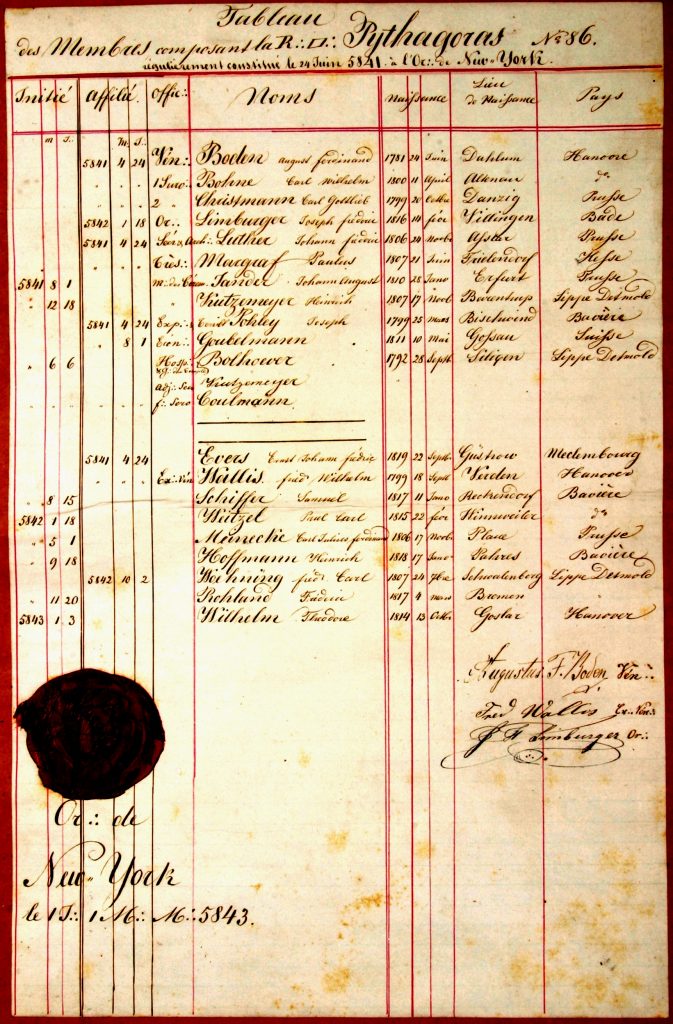 Tableau
des Membres composant la R∴ □∴ Pythagoras No 86.
régulièrement constitué le 24 Juin 5841 à l'Or∴ de New-York.
Initié Affilié Offic∴ Noms Naissance Lieu de Naissance Pays
m J∴ M∴ J∴
5841 4 24 Vén∴ Boden August ferdinand 1781 24 Juin Dahlum Hanovre
" " " 1 Surv∴ Bohne Carl Wilhelm 1800 11 April Altenau do
" " " 2 " Christmann Carl Gottlieb 1799 20 Octbre Danzig Prusse
5842 1 18 Or∴ Limburger Joseph fréderic 1816 14 févr Vittingen Bade
5841 4 24 Secr & Arch∴ Luther Johann frédric 1806 24 Novbr Aslar Prusse
" " " Trés∴ Margraf Paulus 1807 21 Juin Frielendorf Hesse
5841 8 1 m∴ de Cérem∴ Fander Johann August 1810 28 Janv Erfurt Prusse
" 12 18 " " Kutzemeyer Heinrich 1807 17 Novb Barentrup Lippe Detmold
5841 4 24 Exp∴ Pohley Joseph 1799 25 mars Bischwind Bavière
" 8 1 Econ∴ Goubelmann 1811 10 Mai Gossau Suisse
" 6 6 Hosp∴ Bolhoever 1792 28 Septb Siligen Lippe Detmold
adj∴ Secr Kutzemeyer
f∴ Serv Coulmann
5841 4 24 Evers Ernst Johann frédric 1819 22 Septb Güstrow Meclembourg
" " " Ex∴ Vén Wallis fréd Wilhelm 1799 18 Septb Verden Hanover
" 8 15 Schiffer Samuel 1817 11 Janv Bavière
5842 1 18 Witzel Paul Carl 1815 22 févr Winnweiler do
" 5 1 Meinecke Carl Julius ferdinand 1806 17 Novbr Plaue Prusse
" 9 18 Hoffmann Heinrich 1818 17 Janv Bavière
5842 10 2 Weihning fréd Carl 1807 24 7bre Schwalenberg Lippe Detmold
" 11 20 Rohland Fréderic 1817 4 mars Bremen
5843 1 3 Wilhelm Theodore 1814 13 Octbr Goslar Hanover
Augustus F. Boden Vén∴
Fred Wallis Ex∴ Vén∴
J F Limburger Or∴
Or∴ de
New-York
le 1 J∴ 1 M∴ M∴ 5843.